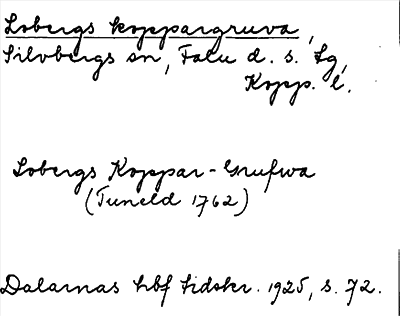 Lobergs koppargruva,
Silvbergs sn, Falu d. s. Lg,
Kopp. l.
Lobergs Koppar-Grufwa
(Tuneld 1762)
Dalarnas hbf tidskr. 1925, s. 72.